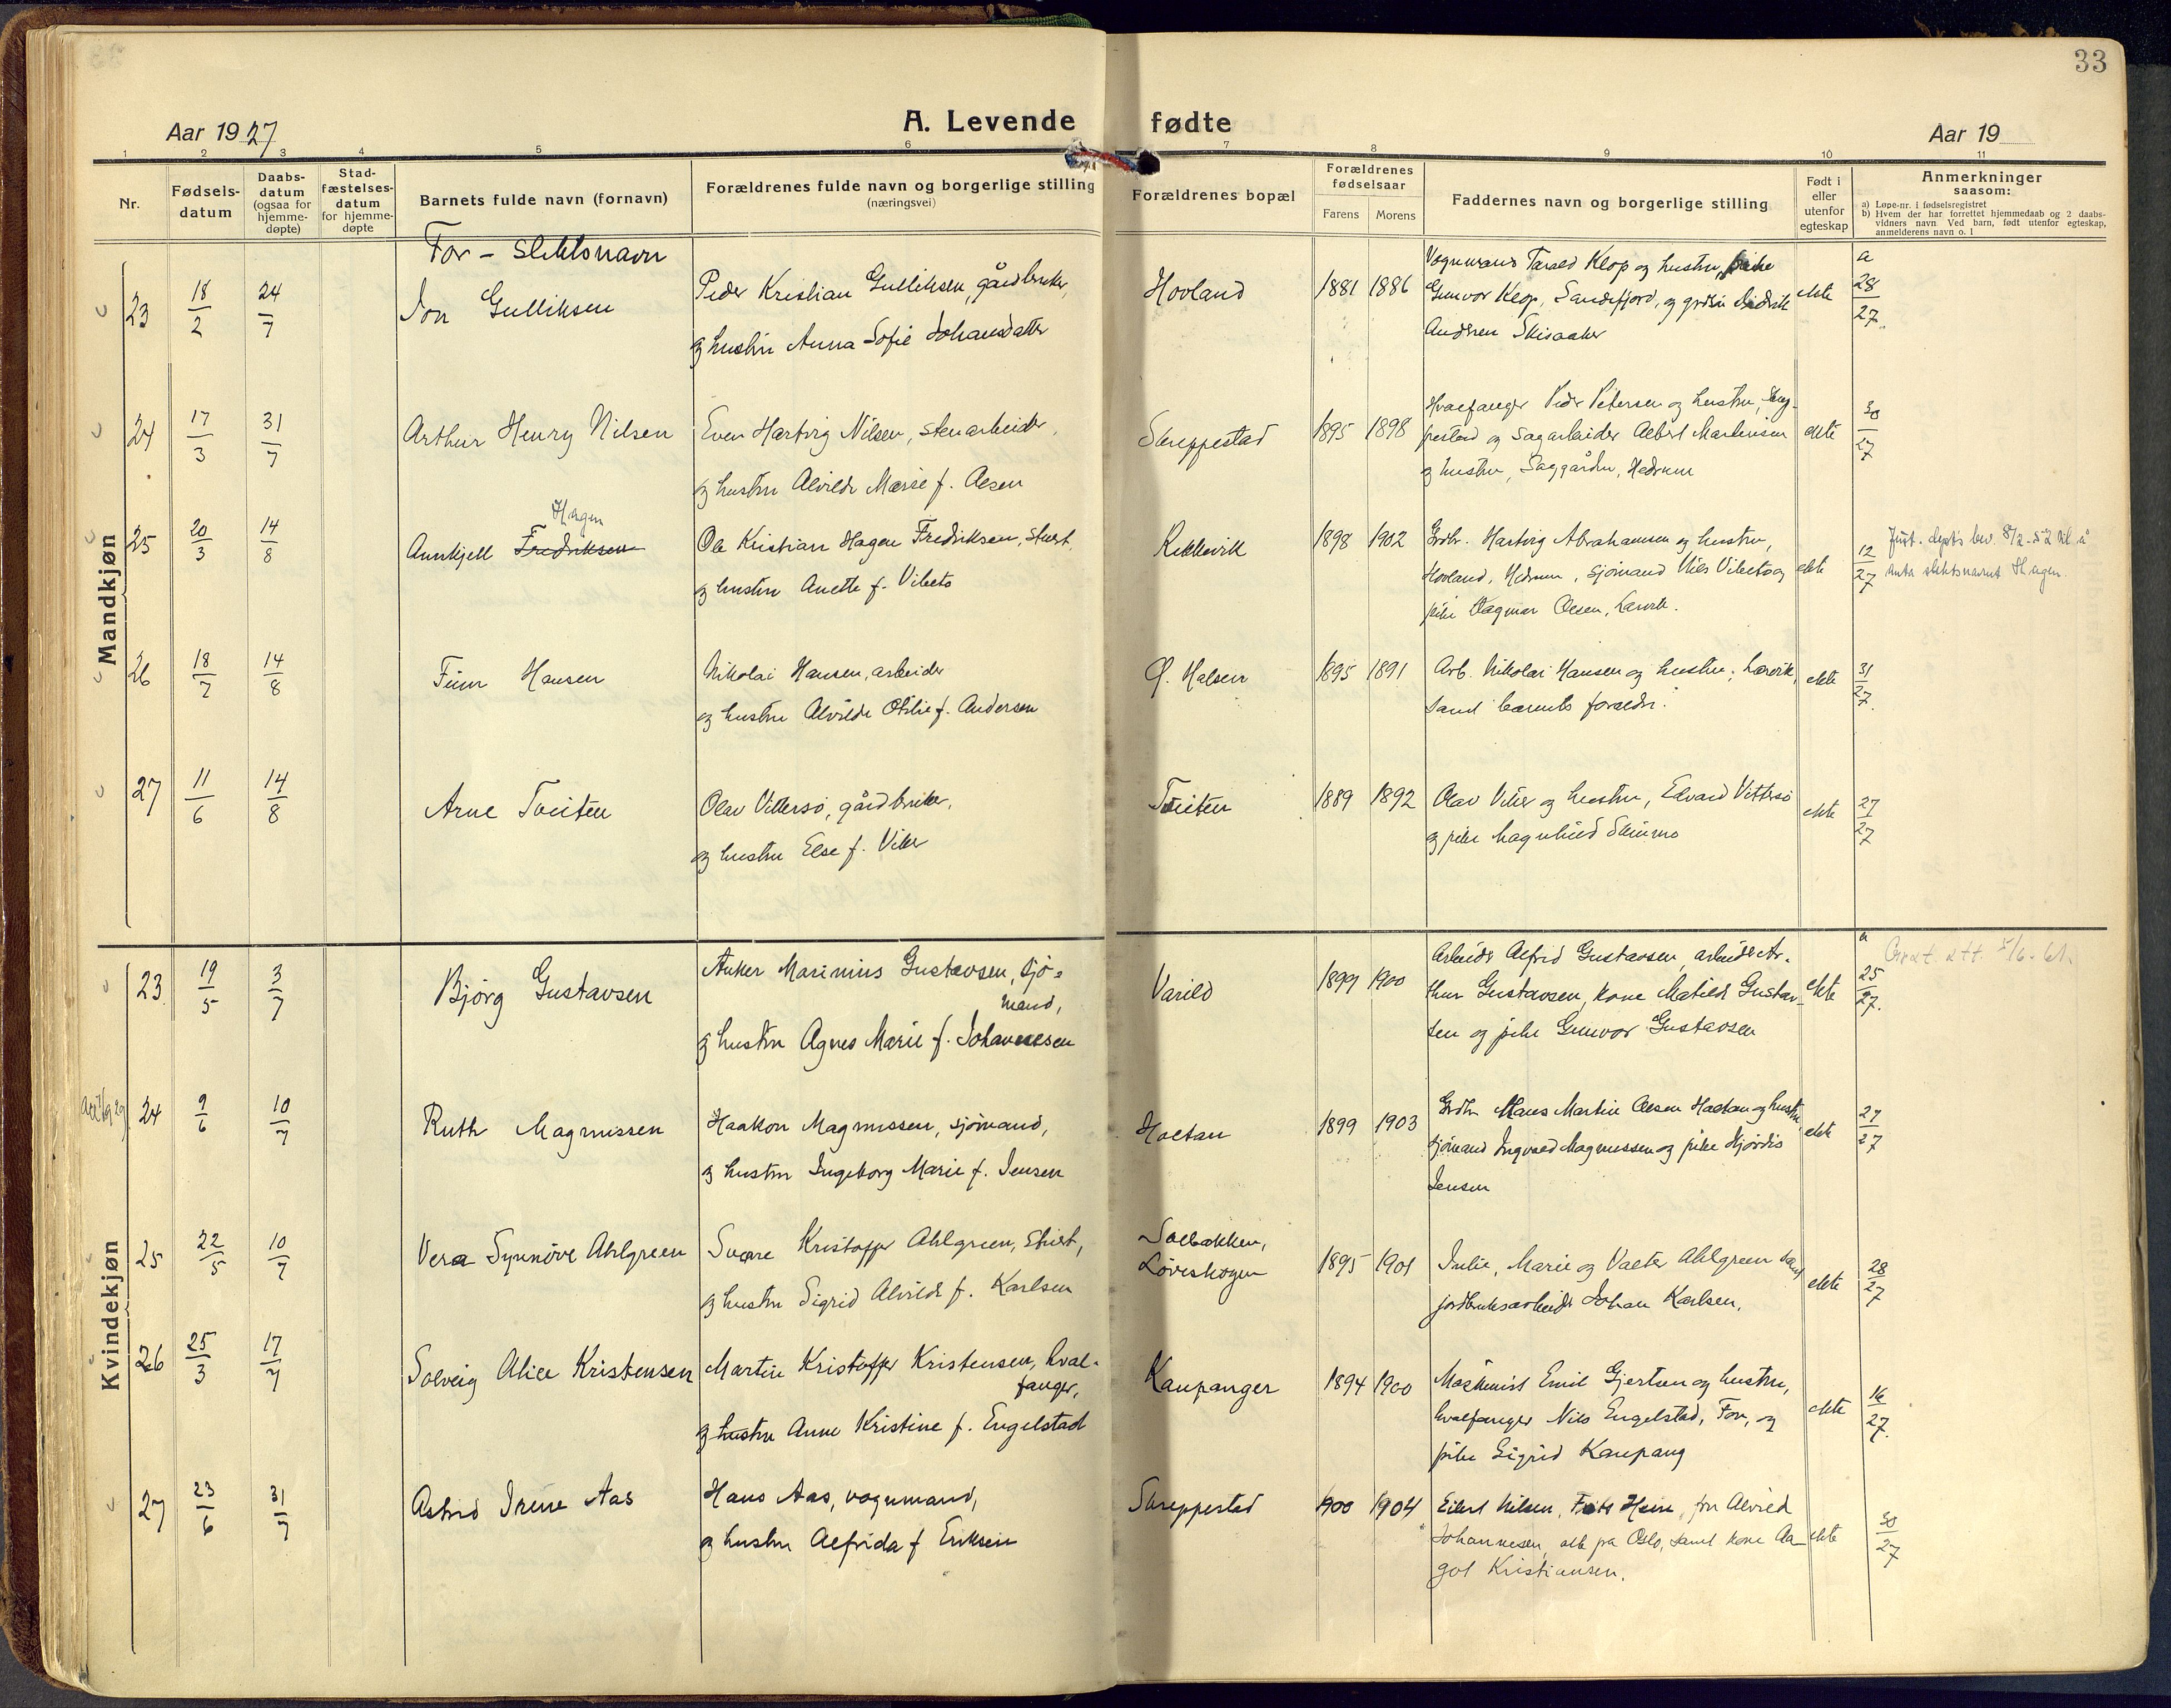 33
Aar 1927
A. Levende fødte
Aar 19
1 2 3 4 5 6 7 8 9 10 11
Nr.
Fødsels-
datum
Daabs-
datum
(ogsaa for
hjemme-
døpte)
Stad-
fæstelses-
datum
for hjemme-
døpte
Barnets fulde navn (fornavn)
Forældrenes fulde navn og borgerlige stilling
(næringsvei)
Forældrenes bopæl
Forældrenes
fødselsaar
Farens Morens
Faddernes navn og borgerlige stilling
Født i
eller
utenfor
egteskap
Anmerkninger
saasom:
a) Løpe-nr. i fødselsregistret
b) Hvem der har forrettet hjemmedaab og 2 daabs-
vidners navn. Ved barn, født utenfor egteskap,
anmelderens navn o. l
Mandkjøn
For - Slektsnavn
23 18/2 24/7 Jon Gulliksen
Peder Kristian Gulliksen, gårdbruker,
og hustru Anna Sofie Johansdatter
Hovland 1881 1886
Vognmand Tarald Klop og hustru, pike
Gunvor Klop, Sandefjord, og Didrik
Andersen Skisaaker
ekte a 28/27.
24 17/3 31/7 Arthur Henry Nilsen
Even Hartvig Nilsen, stenarbeider,
og hustru Alvilde Marie f. Olsen
Skreppestad 1895 1898
Hvalfanger Peder Petersen og hustru, Skrep-
pestad og Sagarbeider Albert Martinsen
og hustru, Saggården, Hedrum
ekte 30/27
25 20/3 14/8 Annkjell Fredriksen Hagen
Ole Kristian Hagen Fredriksen, stuert,
og hustru Anette f. Vibeto
Rekkevik 1898 1902
Grdbr. Hartvig Abrahamsen og hustru,
Hovland, Hedrum, sjømand Nils Vibeto og
pike Dagmar Olsen, Larvik.
ekte 12/27
Just. depts bev. 8/2-52 til å
anta slektsnavnet Hagen.
26 18/7 14/8 Finn Hansen
Nikolai Hansen, arbeider
og hustru Alvilde Otilie f. Andersen
Ø. Halsen 1895 1891
Arb. Nikolai Hansen og hustru, Larvik,
samt barnets foreldre.
ekte 31/27.
27 11/6 14/8 Arne Tveiten
Olav Vittersø, gårdbruker,
og hustru Else f. Viker
Tveiten 1889 1892
Olav Viker og hustru, Edvard Vittersø
og pike Magnhild
ekte 27/27
Kvindekjøn
23 19/5 3/7 Bjørg Gustavsen
Anker Marinius Gustavsen, sjø-
mand,
og hustru Agnes Marie f. Johannesen
Varild 1899 1900
Arbeider Alfred Gustavsen, arbeider Ar-
thur Gustavsen, kone Matilde Gustav-
sen og pike Gunvor Gustavsen
ekte a 25/27.
att. 5/6-61.
24 9/6 10/7 Ruth Magnussen
Haakon Magnussen, sjømand,
og hustru Ingeborg Marie f. Jensen
Holtan 1899 1903
Grdbr. Hans Martin Olsen Holtan og hustru,
sjømand Ingvald Magnussen og pike Hjørdis
Jensen
ekte 27/27
25 22/5 10/7 Vera Synnøve Ahlgreen
Sverre Kristoffer Ahlgreen, Stuert,
og hustru Sigrid Alvilde f. Karlsen
Solbakken,
Løveskogen 1895 1901
Julie, Marie og Valter Ahlgreen samt
jordbruksarbeider Johan Karlsen.
ekte 28/27
26 25/3 17/7 Solveig Alice Kristensen
Martin Kristoffer Kristensen, hval-
fanger,
og hustru Anne Kristine f. Engelstad
Kaupanger 1894 1900
Maskinist Emil Gjertsen og hustru,
hvalfanger Nils Engelstad, Fon, og
pike Sigrid Kaupang
ekte 16/27.
27 23/6 31/7 Astrid Irene Aas
Hans Aas, vognmand,
og hustru Alfrida f Eriksen
Skreppestad 1900 1904
Eilert Nilsen, fru Alvild
Johannesen, alle på Oslo, samt kone Aa-
got Kristiansen.
ekte 30/27